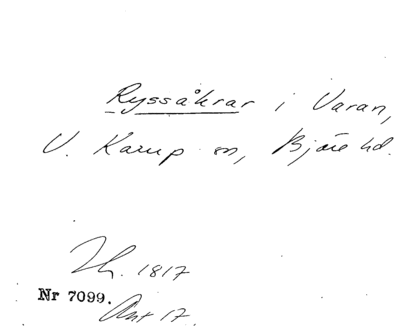 Ryssåkrar i Varan,
V. Karup sn, Bjäre hd.
1817
Nr 7099.
Ant 17